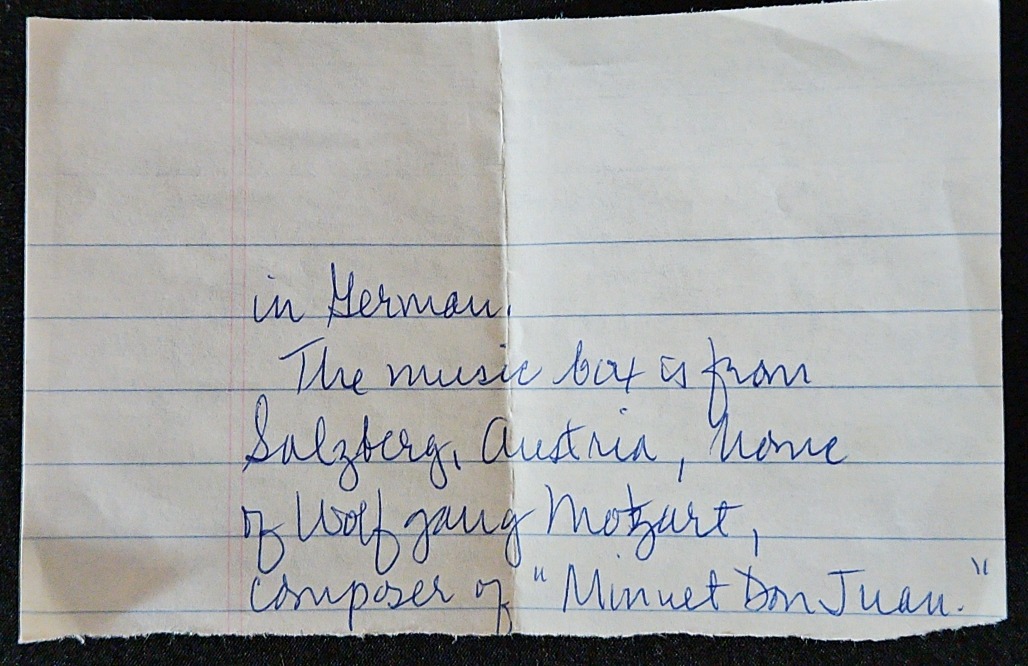 in German.
The music box is from
Salzberg, Austria, home
of Wolfgang Mozart,
composer of "Minuet Don Juan."